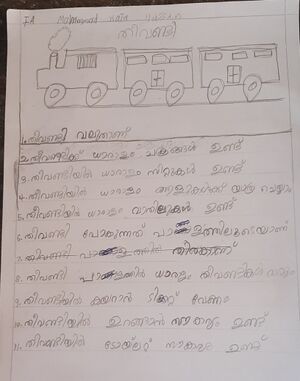 IA
തീവണ്ടി
1. തീവണ്ടി വലുതാണ്
2. തീവണ്ടിക്ക് ധാരാളം ചക്രങ്ങൾ ഉണ്ട്
3. തീവണ്ടിയിൽ ധാരാളം സീറ്റുകൾ ഉണ്ട്
4. തീവണ്ടിയിൽ ധാരാളം ആളുകൾക്ക് യാത്ര ചെയ്യാം
5. തീവണ്ടിയിൽ ധാരാളം വാതിലുകൾ ഉണ്ട്
6. തീവണ്ടി പോകുന്നത് പാളത്തിലൂടെയാണ്
7. തീവണ്ടി
8. തീവണ്ടി പാളത്തിൽ ധാരാളം തീവണ്ടികൾ
9. തീവണ്ടിയിൽ കയറാൻ ടിക്കറ്റ് വേണം
10. തീവണ്ടിയിൽ ഉറങ്ങാൻ സൗകര്യം ഉണ്ട്
11. തീവണ്ടിയിൽ ടോയ്ലറ്റ് സൗകര്യം ഉണ്ട്